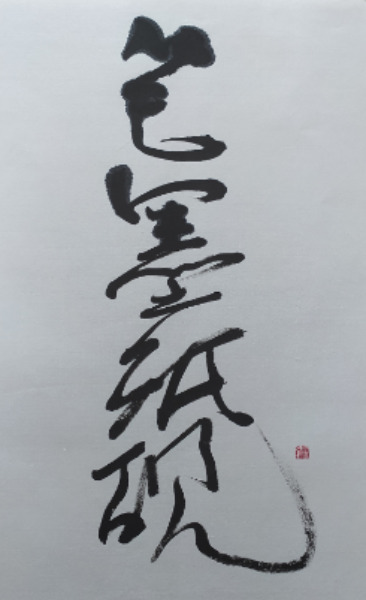 笔墨纸砚